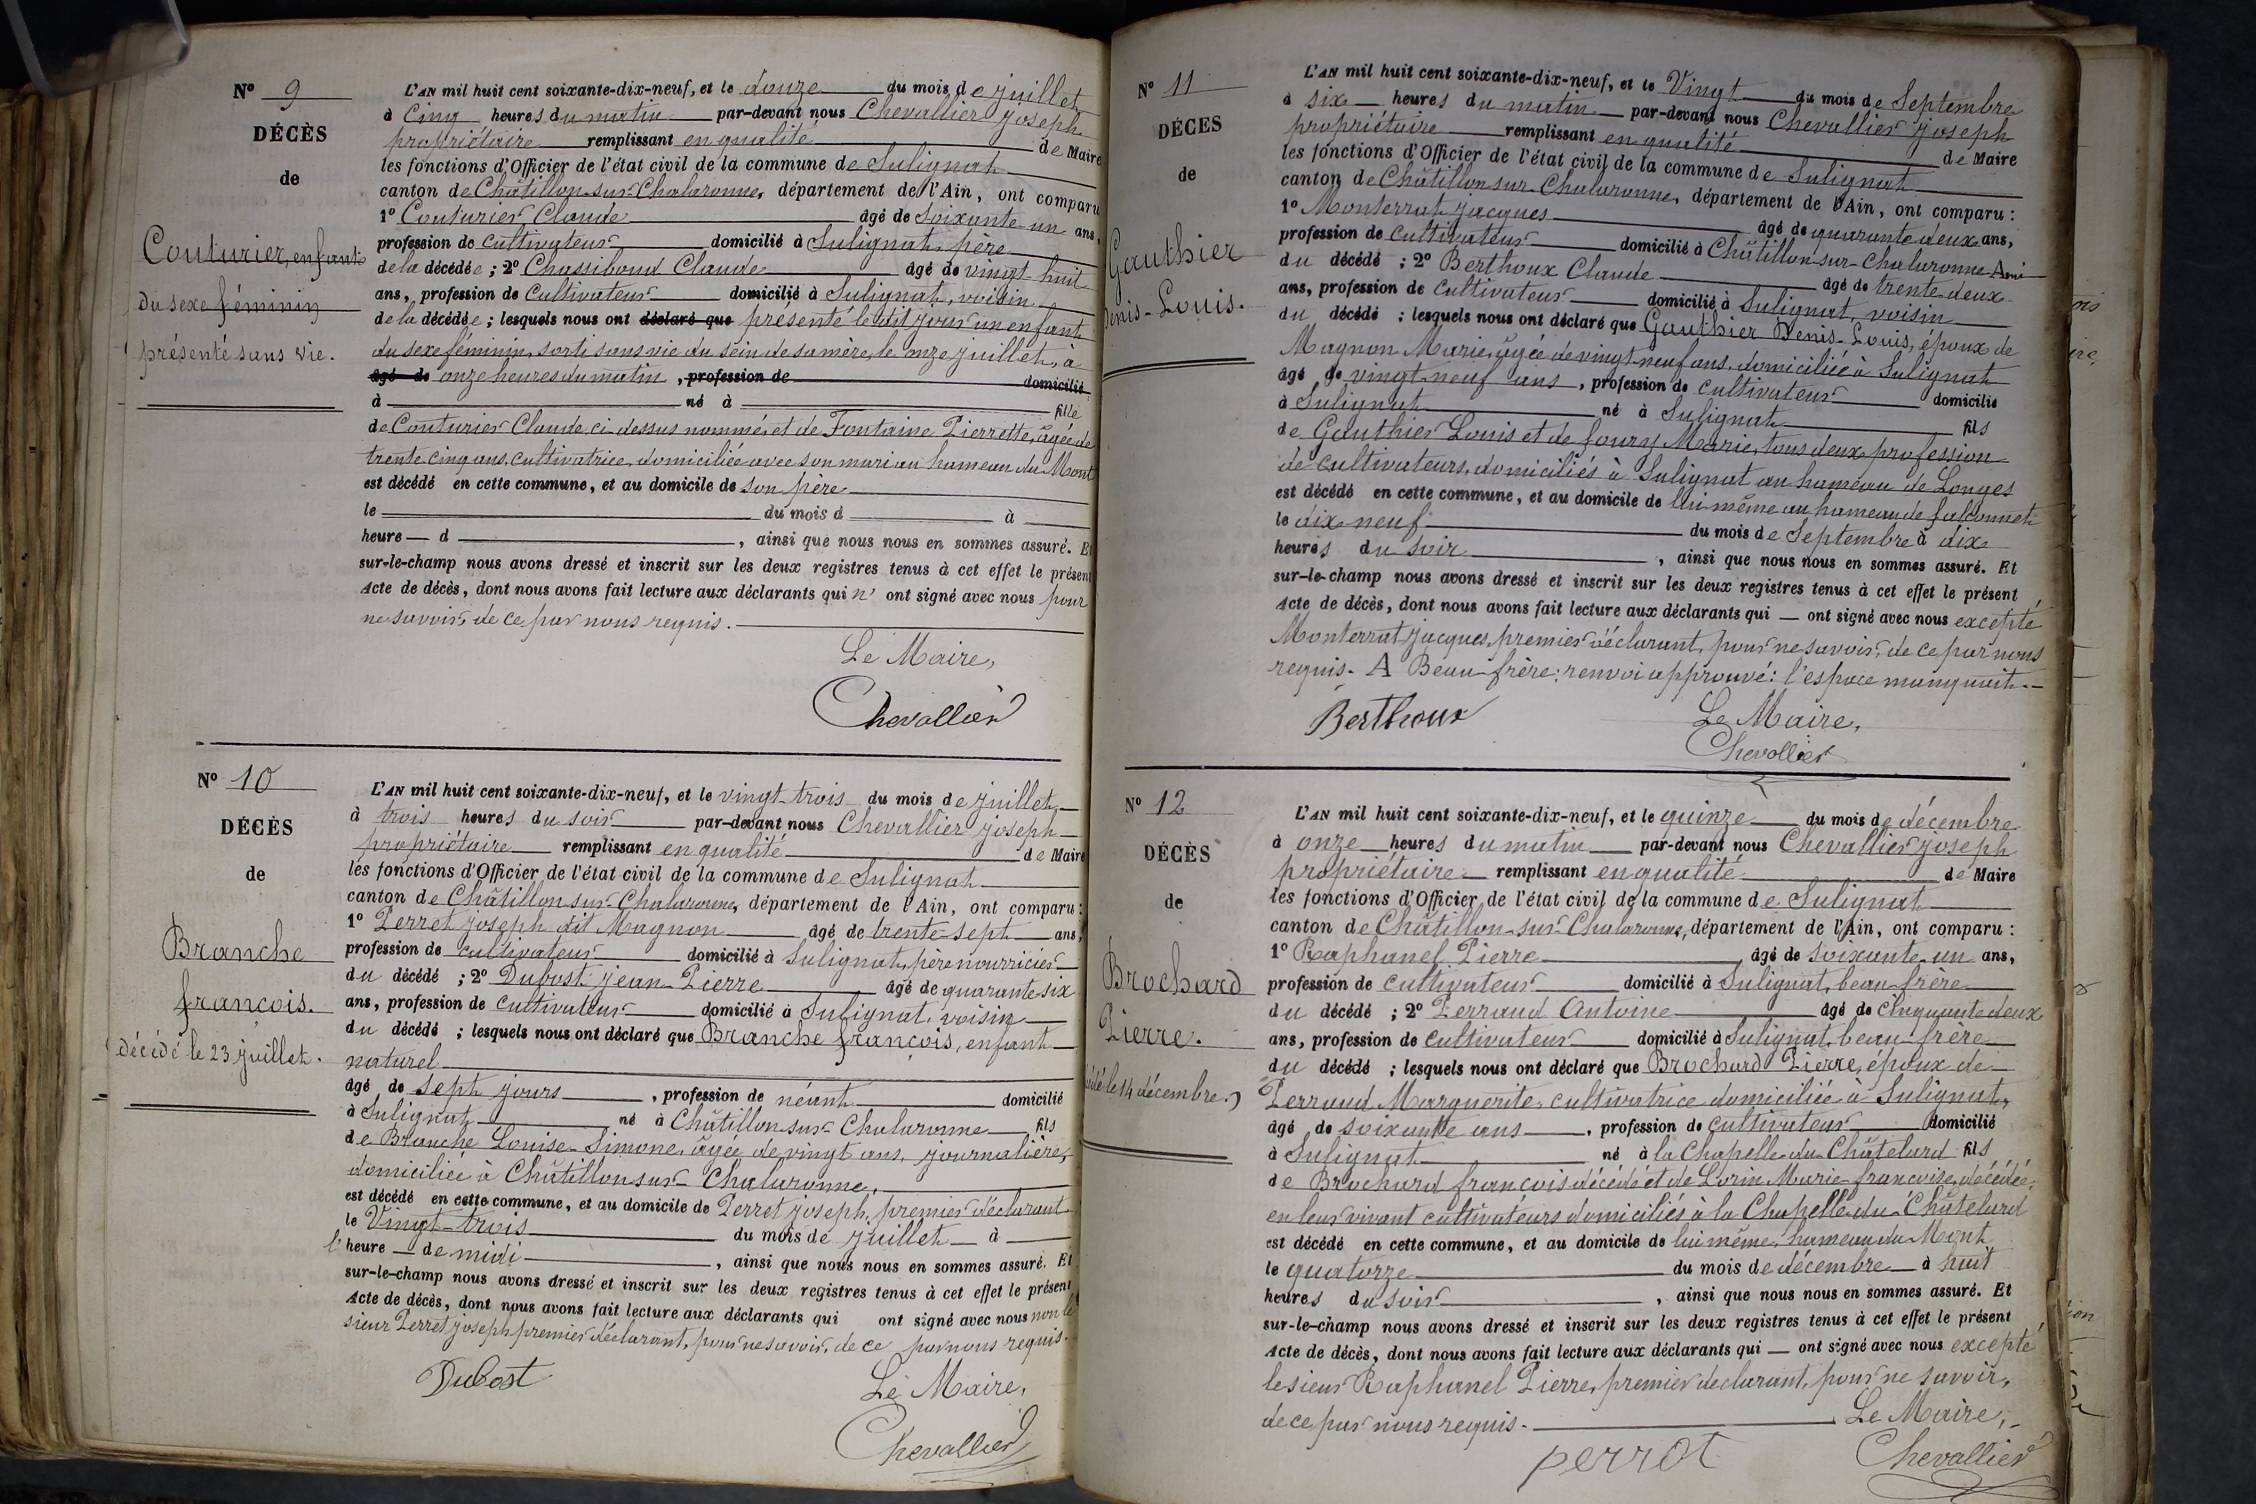 Nº 9
DÉCÈS
de
Couturier, enfant
du sexe féminin
présenté sans vie.
L'AN mil huit cent soixante-dix-neuf, et le douze du mois de juillet
à Cinq heures du matin par-devant nous Chevallier joseph
propriétaire remplissant en qualité de Maire
les fonctions d'Officier de l'état civil de la commune de Sulignat
canton de Châtillon-sur-Chalaronne, département de l'Ain, ont comparu
1º Couturier Claude âgé de soixante-un ans,
profession de cultivateur domicilié à Sulignat, père
de la décédée ; 2º Chassiboud Claude âgé de vingt-huit
ans, profession de cultivateur domicilié à Sulignat, voisin
de la décédée ; lesquels nous ont déclaré que présenté le dit jour un enfant
du sexe féminin, sorti sans vie du sein de sa mère, le onze juillet, à
âgé de onze heures du matin, profession de domicilié
à né à fille
de Couturier Claude, ci-dessus nommé, et de Fontaine Pierrette, âgée de
trente cinq ans, cultivatrice, domiciliée avec son mari au hameau du Mont
est décédé en cette commune, et au domicile de son père
le du mois d à
heure d , ainsi que nous nous en sommes assuré. Et
sur-le-champ nous avons dressé et inscrit sur les deux registres tenus à cet effet le présent
Acte de décès, dont nous avons fait lecture aux déclarants qui n' ont signé avec nous pour
ne savoir, de ce par nous requis.
Le Maire,
Chevallier
Nº 10
DÉCÈS
de
Branche
françois.
décédé le 23 juillet.
L'AN mil huit cent soixante-dix-neuf, et le vingt-trois du mois de juillet
à trois heures du soir par-devant nous Chevallier joseph
propriétaire remplissant en qualité de Maire
les fonctions d'Officier de l'état civil de la commune de Sulignat
canton de Châtillon-sur-Chalaronne, département de l'Ain, ont comparu :
1º Perret joseph dit Magnon âgé de trente-sept ans,
profession de cultivateur domicilié à Sulignat, père nourricier
du décédé ; 2º Dubost jean-Pierre âgé de quarante-six
ans, profession de cultivateur domicilié à Sulignat, voisin
du décédé ; lesquels nous ont déclaré que Branche françois, enfant
naturel
âgé de sept jours, profession de néant domicilié
à Sulignat né à Châtillon-sur-Chalaronne fils
de Branche Louise-Simone, âgée de vingt ans, journalière,
domiciliée à Châtillon-sur-Chalaronne,
est décédé en cette commune, et au domicile de Perret joseph, premier déclarant
le Vingt-trois du mois de juillet à
l'heure de midi, ainsi que nous nous en sommes assuré. Et
sur-le-champ nous avons dressé et inscrit sur les deux registres tenus à cet effet le présent
Acte de décès, dont nous avons fait lecture aux déclarants qui ont signé avec nous non le
sieur Perret joseph premier déclarant, pour ne savoir, de ce par nous requis.
Dubost Le Maire,
Chevallier
Nº 11
DÉCÈS
de
Gauthier
Denis-Louis.
L'AN mil huit cent soixante-dix-neuf, et le Vingt du mois de Septembre
à six heures du matin par-devant nous Chevallier joseph
propriétaire remplissant en qualité de Maire
les fonctions d'Officier de l'état civil de la commune de Sulignat
canton de Châtillon-sur-Chalaronne, département de l'Ain, ont comparu :
1º Monterrat jacques âgé de quarante deux ans,
profession de cultivateur domicilié à Châtillon-sur-Chalaronne A
du décédé ; 2º Berthoux Claude âgé de trente-deux
ans, profession de cultivateur domicilié à Sulignat, voisin
du décédé ; lesquels nous ont déclaré que Gauthier Denis-Louis, époux de
Magnon Marie, âgée de vingt-neuf ans, domiciliée à Sulignat
âgé de vingt-neuf ans, profession de cultivateur domicilié
à Sulignat né à Sulignat fils
de Gauthier Louis et de foury Marie, tous deux profession
de cultivateurs, domiciliés à Sulignat au hameau de Longes
est décédé en cette commune, et au domicile de lui-même au hameau de falconnet
le dix-neuf du mois de Septembre à dix
heures du soir, ainsi que nous nous en sommes assuré. Et
sur-le-champ nous avons dressé et inscrit sur les deux registres tenus à cet effet le présent
Acte de décès, dont nous avons fait lecture aux déclarants qui ont signé avec nous excepté
Monterrat jacques, premier déclarant, pour ne savoir, de ce par nous
requis. A Beau-frère : renvoi approuvé : l'espace manquait.
Berthoux Le Maire,
Chevallier
Nº 12
DÉCÈS
de
Brochard
Pierre.
le 14 décembre.
L'AN mil huit cent soixante-dix-neuf, et le quinze du mois de décembre
à onze heures du matin par-devant nous Chevallier joseph
propriétaire remplissant en qualité de Maire
les fonctions d'Officier de l'état civil de la commune de Sulignat
canton de Châtillon-sur-Chalaronne, département de l'Ain, ont comparu :
1º Raphanel Pierre âgé de soixante-un ans,
profession de cultivateur domicilié à Sulignat, beau-frère
du décédé ; 2º Perraud Antoine âgé de cinquante deux
ans, profession de cultivateur domicilié à Sulignat, beau-frère
du décédé ; lesquels nous ont déclaré que Brochard Pierre, époux de
Perraud Marguerite, cultivatrice domiciliée à Sulignat,
âgé de soixante ans, profession de cultivateur domicilié
à Sulignat né à la Chapelle du Châtelard fils
de Brochard françois décédé et de Lorin Marie-françoise, décédée,
en leur vivant cultivateurs domiciliés à la Chapelle-du-Châtelard
est décédé en cette commune, et au domicile de lui-même, hameau du Mont
le quatorze du mois de décembre à huit
heures du soir, ainsi que nous nous en sommes assuré. Et
sur-le-champ nous avons dressé et inscrit sur les deux registres tenus à cet effet le présent
Acte de décès, dont nous avons fait lecture aux déclarants qui ont signé avec nous excepté
le sieur Raphanel Pierre, premier déclarant, pour ne savoir,
de ce par nous requis. Le Maire,
perrot Chevallier